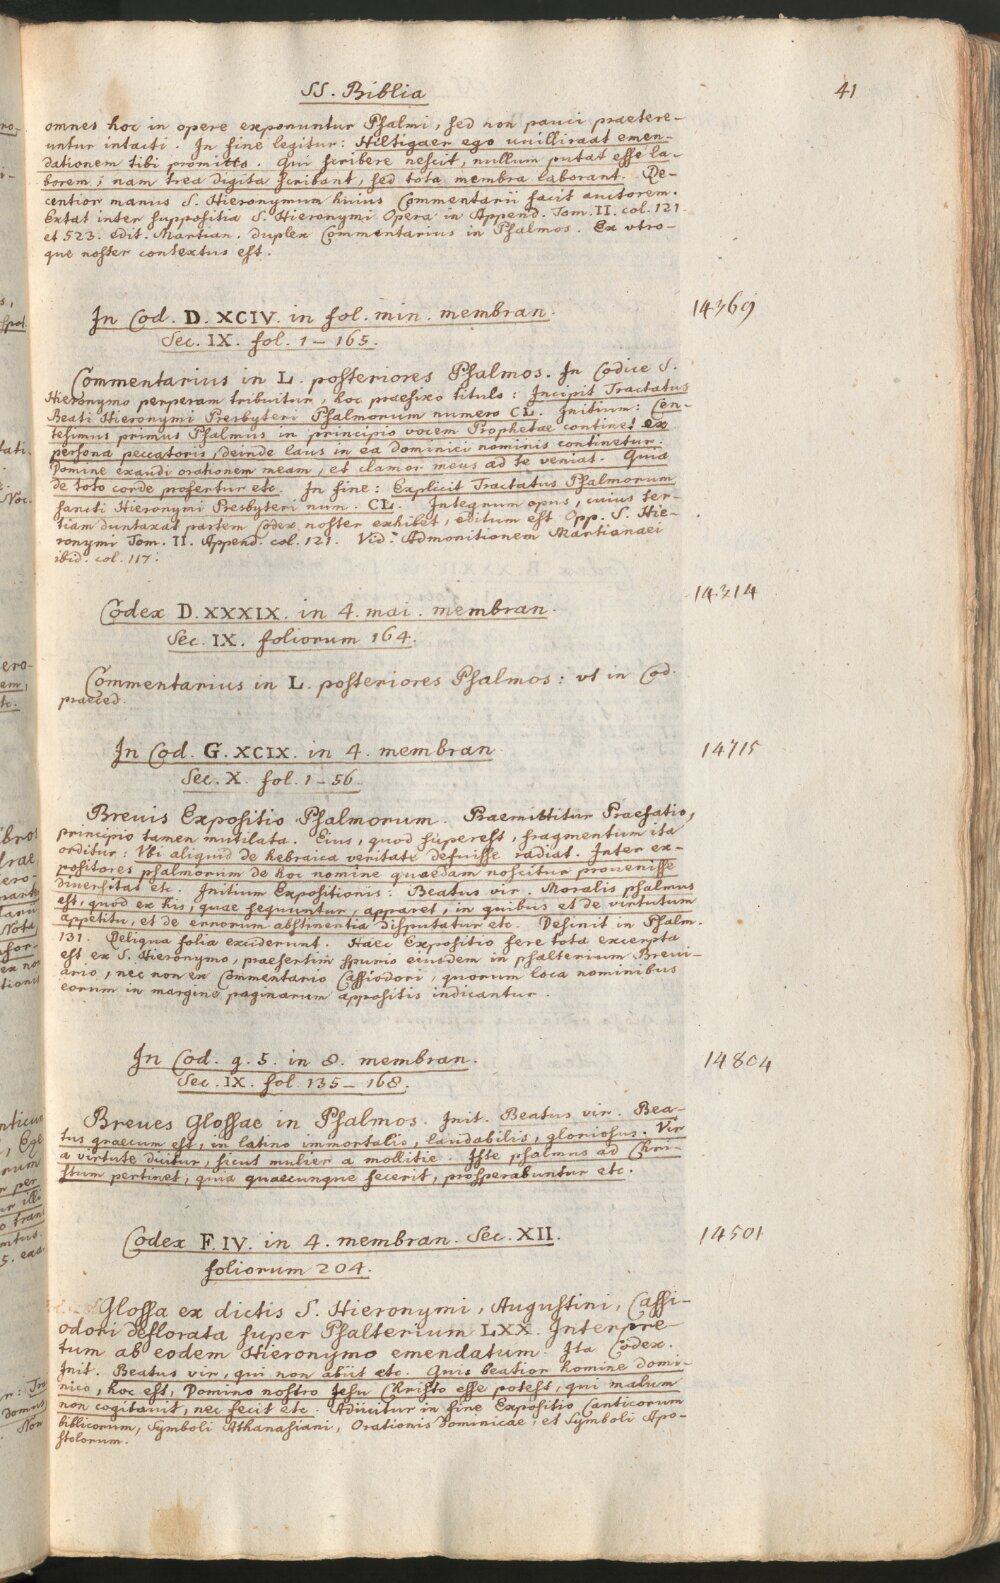 SS. Biblia
41
omnes hoc in opere exponuntur Psalmi, sed non pauci praetere-
untur intacti. In fine legitur: Hiltigaer ego uuilliraat emen-
dationem tibi promitto. Qui scribere nescit, nullum putat esse la-
borem; nam trea digita scribant, sed tota membra laborant. Re-
centior manus S. Hieronymum huius Commentarii facit auctorem.
Extat inter supposititia S. Hieronymi Opera in Append. Tom. II. col. 121.
et 523. edit. Martian. duplex Commentarius in Psalmos. Ex vtro-
que noster contextus est.
In Cod. D. XCIV. in fol. min. membran.
14369
Sec. IX. fol. 1 - 165.
Commentarius in L. posteriores Psalmos. In Codice S.
Hieronymo perperam tribuitur, hoc praefixo titulo: Incipit Tractatus
Beati Hieronymi Presbyteri Psalmorum numero CL. Initium: Cen-
tesimus primus Psalmus in principio vocem Prophetae continet ex
persona peccatoris, deinde laus in ea dominici nominis continetur.
Domine exaudi orationem meam, et clamor meus ad te veniat. Quia
de toto corde profertur etc. In fine: Explicit Tractatus Psalmorum
sancti Hieronymi Presbyteri num. CL. Integrum opus, cuius ter-
tiam duntaxat partem Codex noster exhibet, editum est Opp. S. Hie-
ronymi Tom. II. Append. col. 121. Vid. Admonitionem Martianaei
ibid. col. 117.
Codex D. XXXIX. in 4. mai. membran.
14314
Sec. IX. foliorum 164.
Commentarius in L. posteriores Psalmos: vt in Cod.
praeced.
In Cod. G. XCIX. in 4. membran
14715
Sec. X. fol. 1 - 56
Breuis Expositio Psalmorum. Praemittitur Praefatio,
principio tamen mutilata. Eius, quod superest, fragmentum ita
orditur: Vbi aliquid de hebraica veritate defuisse radiat. Inter ex-
positores psalmorum de hoc nomine quaedam noscitur prouenisse
diuersitas etc. Initium Expositionis: Beatus vir. Moralis psalmus
est, quod ex his, quae sequuntur, apparet, in quibus et de virtutum
appetitu, et de errorum abstinentia disputatur etc. Desinit in Psalm.
131. Reliqua folia exciderunt. Haec Expositio fere tota excerpta
est ex S. Hieronymo, praesertim spurio eiusdem in psalterium Breui-
ario, nec non ex Commentario Cassiodori, quorum loca nominibus
eorum in margine paginarum appositis indicantur.
In Cod. g. 5. in 8. membran.
14804
Sec. IX. fol. 135 - 168.
Breues Glossae in Psalmos. Init. Beatus vir. Bea-
tus graecum est, in latino immortalis, laudabilis, gloriosus. Vir
a virtute dicitur, sicut mulier a mollitie. Iste psalmus ad Chri-
stum pertinet, quia quaecunque fecerit, prosperabuntur etc.
Codex F. IV. in 4. membran. Sec. XII.
14501
foliorum 204.
Glossa ex dictis S. Hieronymi, Augustini, Cassi-
odori deflorata super Psalterium LXX. Interpre-
tum ab eodem Hieronymo emendatum. Ita Codex.
Init. Beatus vir, qui non abiit etc. Quis beatior homine domi-
nico, hoc est, Domino nostro Jesu Christo esse potest, qui malum
non cogitauit, nec fecit etc. Adiicitur in fine Expositio Canticorum
biblicorum, Symboli Athanasiani, Orationis Dominicae, et Symboli Apo-
stolorum.